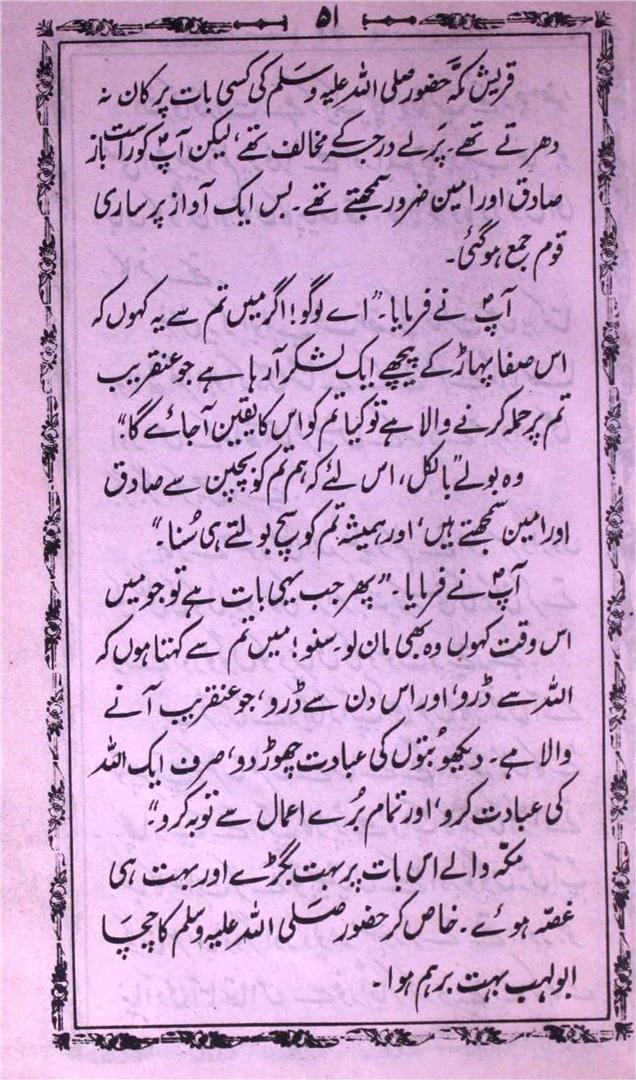 ۵۱
قریش مکہّ حضور صلی اللہ علیہ وسَلم کی کسی بات پر کان نہ
دھرتے تھے۔ پَرلے درجہ کے مخالف تھے، لیکن آپؐ کو راست باز
صادق اور امین ضرور سمجھتے تھے۔ بس ایک آواز پر ساری
قوم جمع ہوگئی۔
آپؐ نے فرمایا۔ "اے لوگو! اگر میں تم سے یہ کہوں کہ
اس صفا پہاڑ کے پیچھے ایک لشکر آرہا ہے جو عنقریب
تم پر حملہ کرنے والا ہے تو کیا تم کو اس کا یقین آجائے گا۔"
وہ بولے "بالکل، اس لئے کہ ہم تم کو بچپن سے صادق
اور امین سمجھتے ہیں، اور ہمیشہ تم کو سچ بولتے ہی سُنا۔"
آپؐ نے فرمایا۔ "پھر جب یہی بات ہے تو جو میں
اس وقت کہوں وہ بھی مان لو۔ سنو! میں تم سے کہتا ہوں کہ
اللہ سے ڈرو، اور اس دن سے ڈرو، جو عنقریب آنے
والا ہے۔ دیکھو بُتوں کی عبادت چھوڑ دو، صرف ایک اللہ
کی عبادت کرو، اور تمام بُرے اعمال سے توبہ کرو۔"
مکہّ والے اس بات پر بہت بگڑے اور بہت ہی
غصّہ ہوئے۔ خاص کر حضور صَلّی اللہ علیہ وسلم کا چچَا
ابولہب بہت برہم ہوا۔